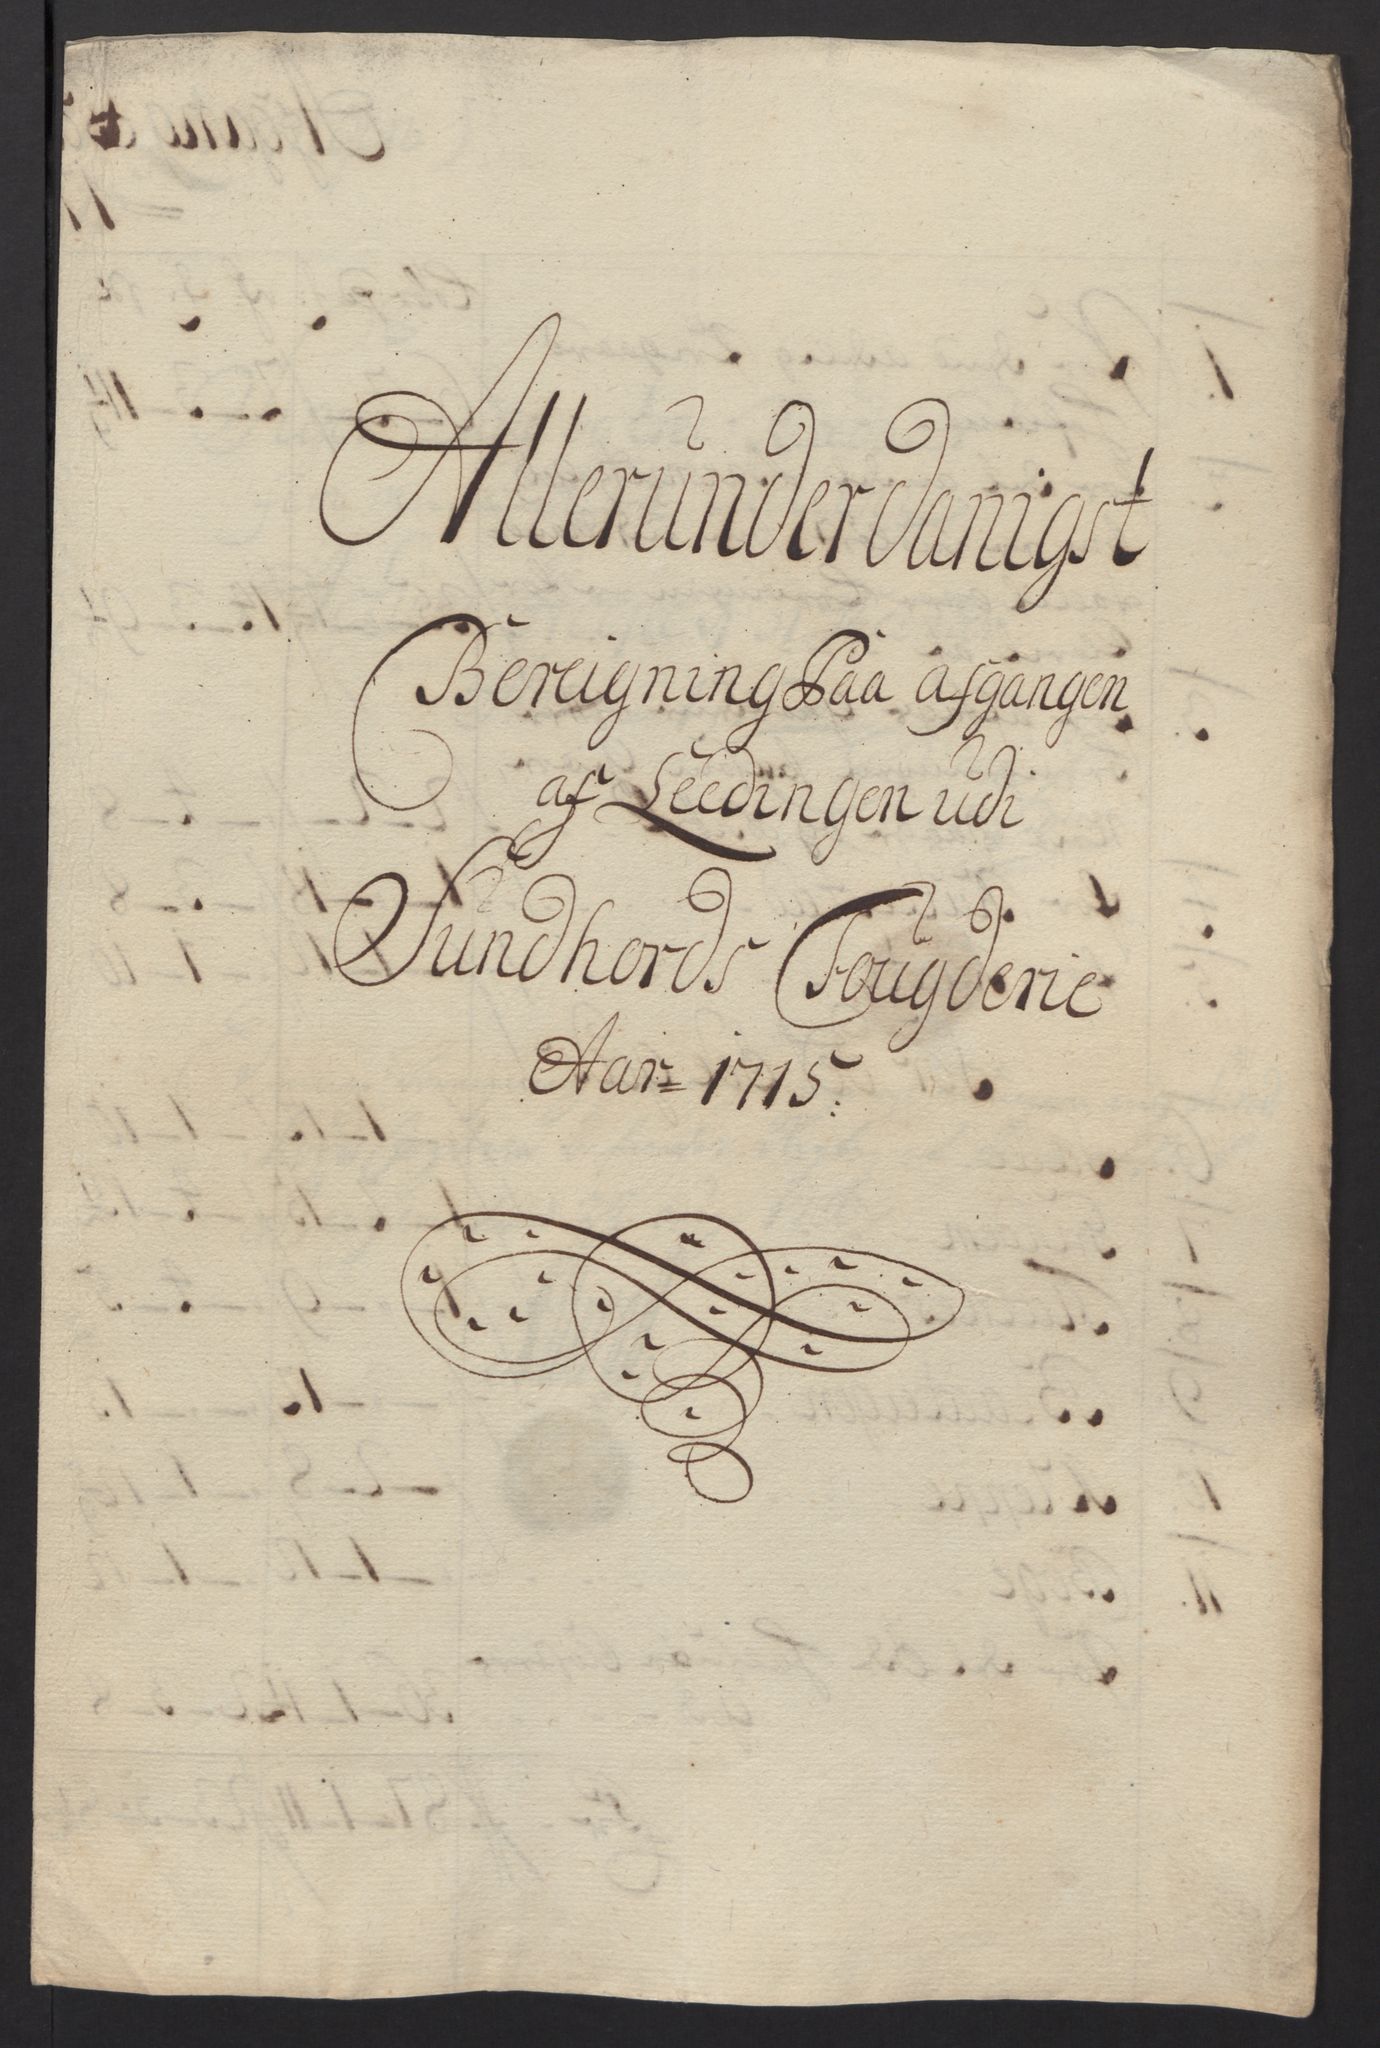 Alleründerdanigst
Bereigning Paa afgangen
af Leedingen udi
Sundhords Fougderie
Aar= 1715: